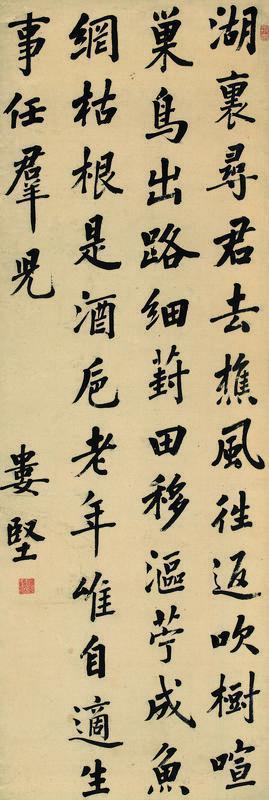 湖裏尋君去樵風徃返吹樹喧
巢鳥出路細葑田移漚苧成魚
網枯根是酒巵老年惟自適生
事任羣兒
婁堅